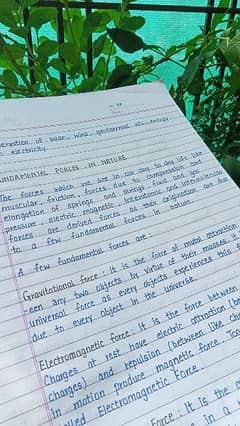 ervation of solar, wind, geothermal etc. energy
electricity.
FUNDAMENTAL FORCES IN NATURE
The forces which we see in our day to day life like
muscular, friction, forces due to compression and
elongation of springs and strings, fluid and gas
pressure, electric, magnetic, interatomic and intermolecular
forces are derived forces as their origination are due
to a few fundamental forces in nature.
A few fundamental forces are :-
Gravitational force : It is the force of mutual attraction
-een any two objects by virtue of their masses. It
universal force as every objects experiences this
due to every object in the universe.
Electromagnetic force : It is the force between
Charges at rest have electric attraction (between
charges) and repulsion (between like
in motion produce magnetic force. Toge
lled Electromagnetic Force.
Force : It is the
in a